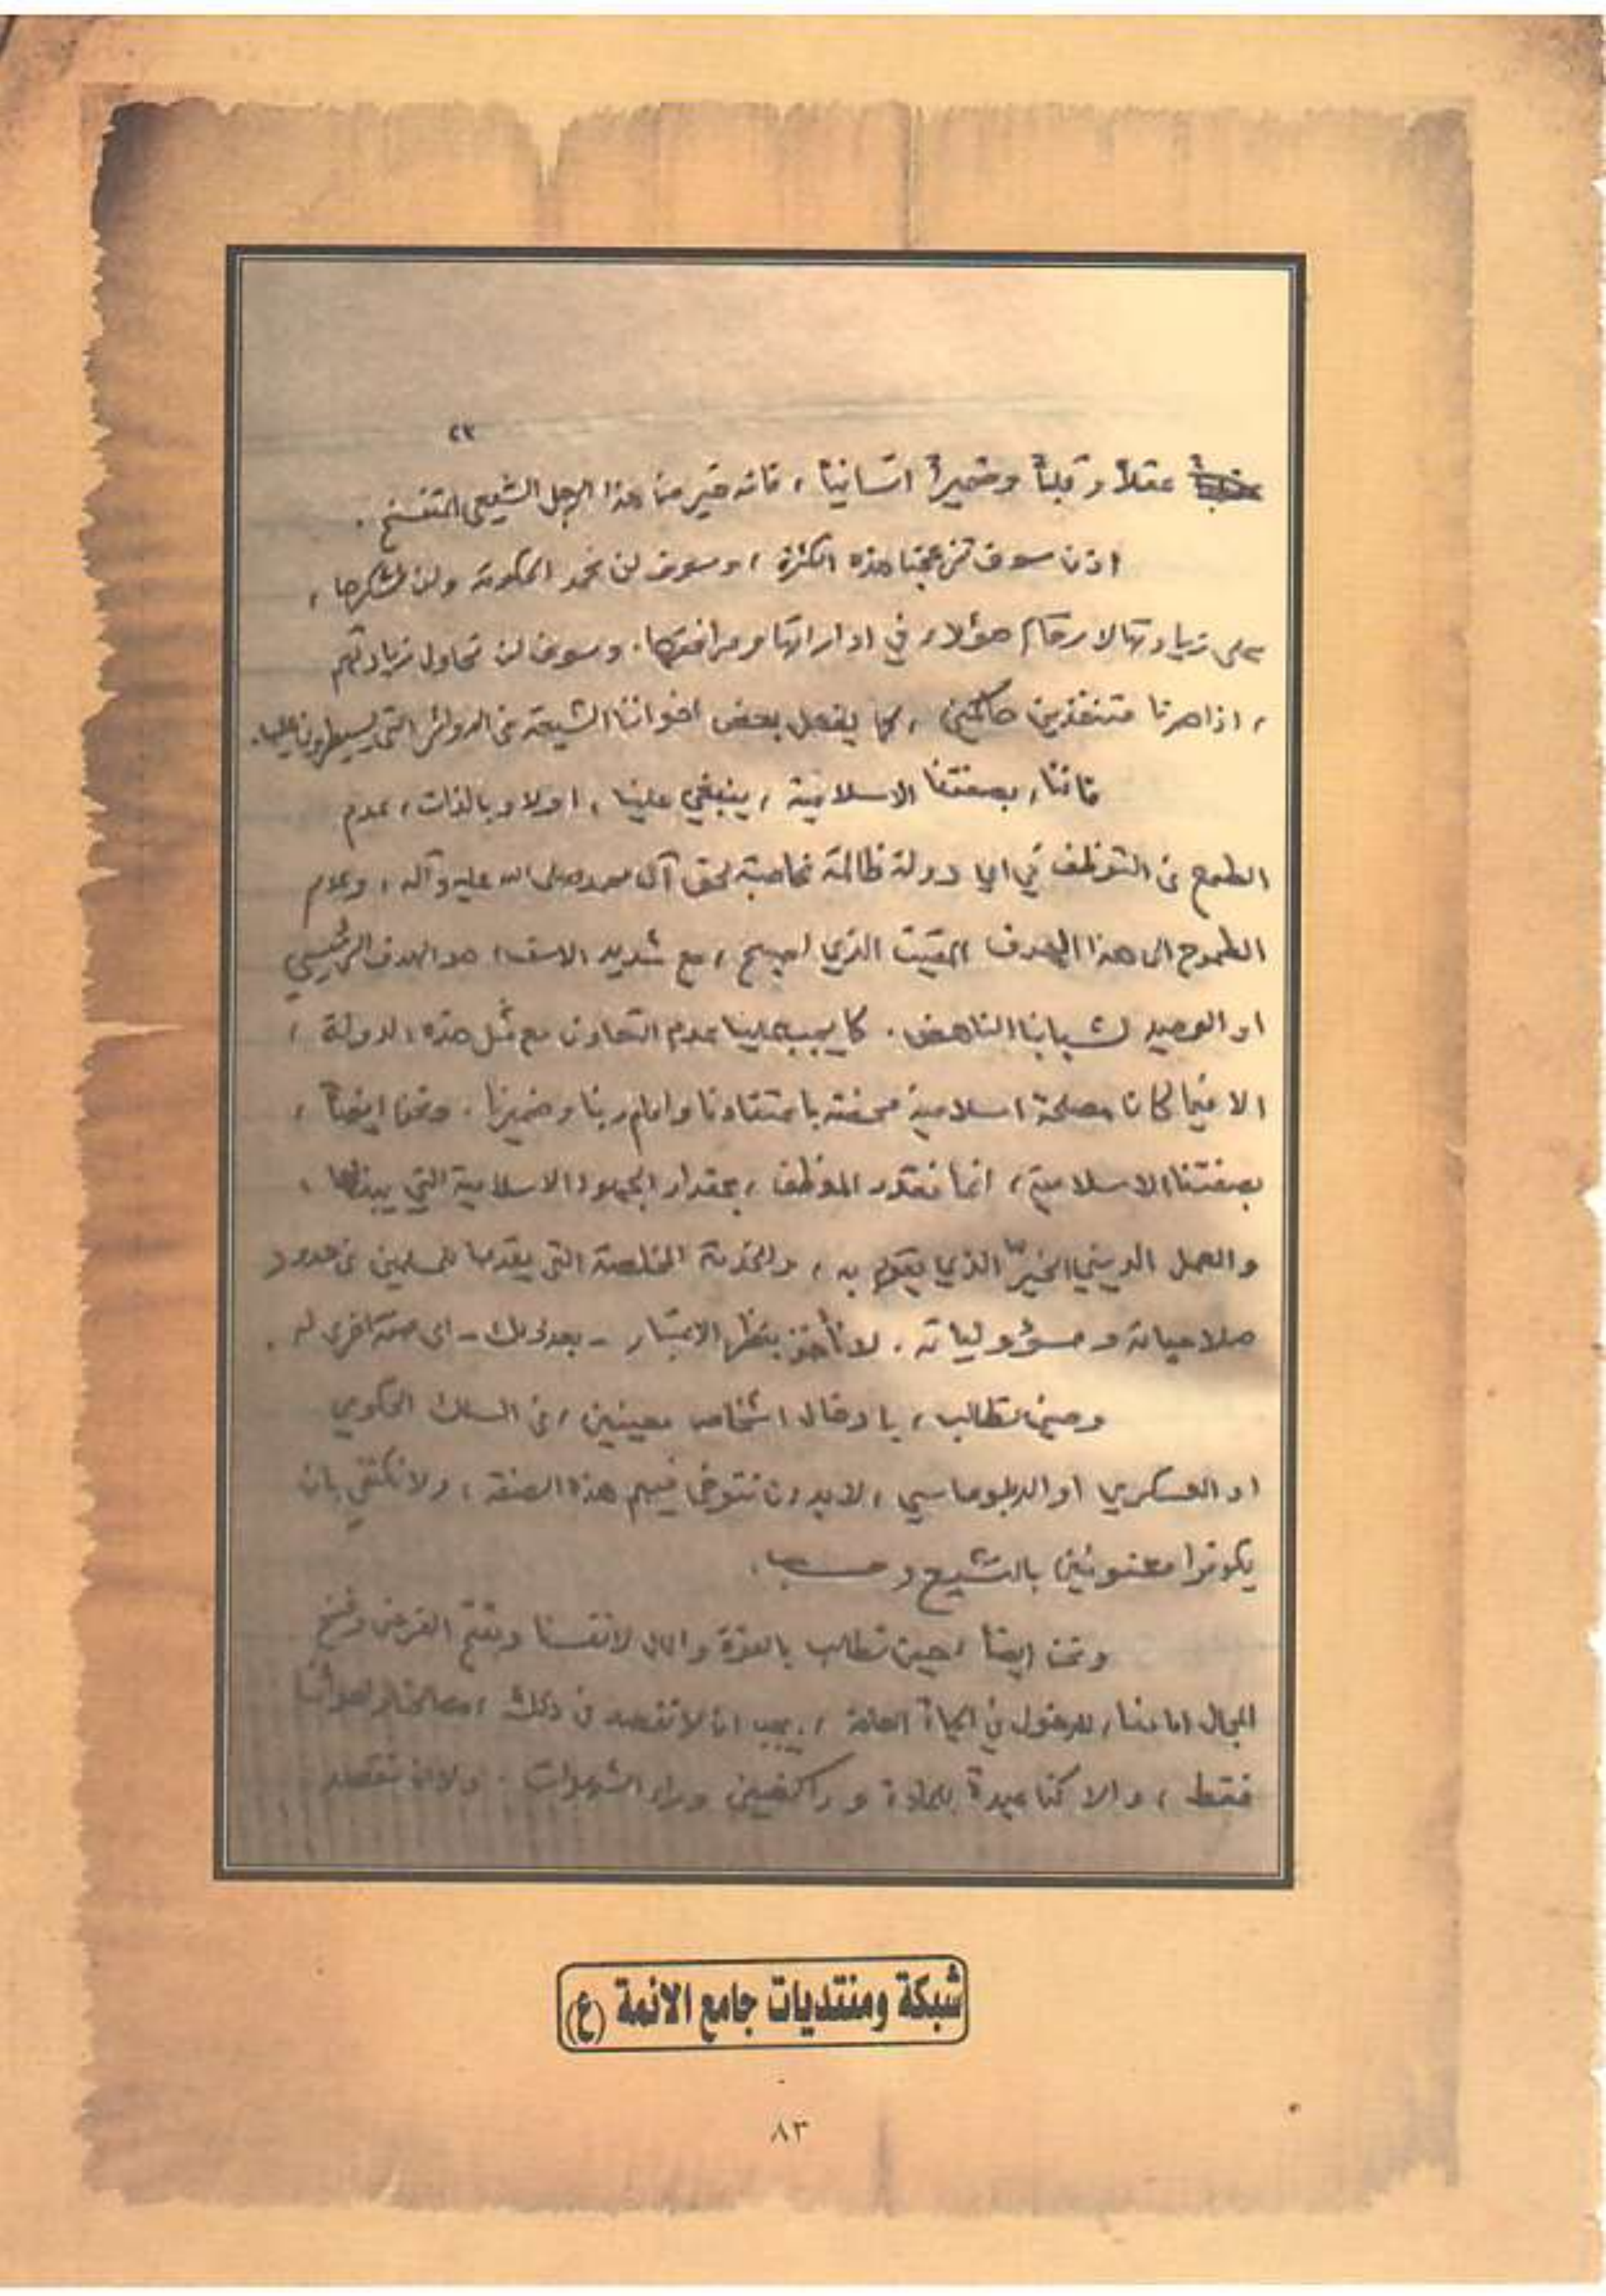 ٢٣
عقلاً وقلباً وضميراً انسانياً ، فانه خير من هذا الرجل الشيعي المتفسخ .
اذن سوف تزعجنا هذه الكثرة ، وسوف لن نحمد الحكومة ولن نشكرها ،
على زيادتها لارقام هؤلاء في اداراتها ومرافقها . وسوف لن نحاول زيادتهم
، اذا صرنا متنفذين حاكمين ، كما يفعل بعض اخواننا الشيعة في الدوائر التي يسيطرون عليها .
فاننا ، بصفتنا الاسلامية ، ينبغي علينا ، اولا وبالذات ، عدم
الطمع في التوظف في اي دولة ظالمة غاصبة لحق آل محمد صلى الله عليه وآله ، وعدم
الطموح الى هذا الهدف المقيت الذي اصبح ، مع شديد الاسف ، هو الهدف الرئيسي
او الوحيد لشبابنا الناهض . كما يجب علينا عدم التعاون مع مثل هذه الدولة ،
الا فيما كان مصلحة اسلامية محضة باعتقادنا وامام ربنا وضميرنا . ونحن ايضاً ،
بصفتنا الاسلامية ، انما نقدر الموظف ، بمقدار الجهود الاسلامية التي يبذلها ،
والعمل الديني الخيّر الذي يقوم به ، والخدمة المخلصة التي يقدمها للمسلمين في حدود
صلاحياته ومسؤولياته . لا نأخذ بنظر الاعتبار - بعد ذلك - اي صفة اخرى له .
وحين نطالب ، بادخال اشخاص معينين ، في السلك الحكومي
او العسكري او الدبلوماسي ، لابد ان نتوخى فيهم هذه الصفة ، ولا نكتفي بان
يكونوا معنونين بالتشيع وحسب .
ونحن ايضاً ، حين نطالب بالعزة والمال لانفسنا وبفتح الفرص وفسح
المجال امامنا ، للدخول في الحياة العامة ، يجب ان لا نقصد في ذلك ، مصالحنا واهوائنا
فقط ، والا كنا عبدة للمادة وراكضين وراء الشهوات . ولا ان نقصد
شبكة ومنتديات جامع الائمة (ع)
٨٣